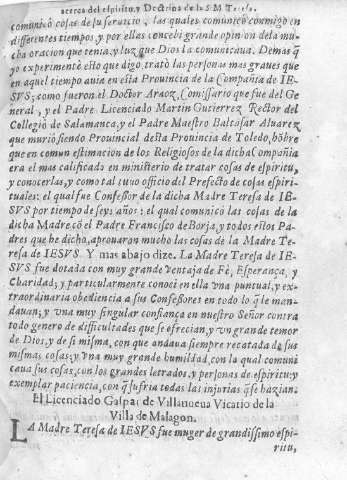 acerca del espiritu, y Doctrina de la S. M. Teresa.
comunicò cosas de su seruicio, las quales comunicò conmigo en
differentes tiempos, y por ellas concebi grande opinion de la mu
cha oracion que tenia, y luz que Dios la comunicaua. Demas q̃
yo experimentè esto que digo, tratò las personas mas graues que
en aquel tiempo auia en esta Prouincia de la Compañia de IE-
SVS; como fueron el Doctor Araoz, Comissario que fue del Ge
neral, y el Padre Licenciado Martin Gutierrez Rector del
Collegio de Salamanca, y el Padre Maestro Baltasar Aluarez
que muriò siendo Prouincial desta Prouincia de Toledo, hõbre
que en comun estimaciõn de los Religiosos de la dicha Compañia
era el mas calificado en ministerio de tratar cosas de espiritu,
y conocerlas, y como tal tuuo officio del Prefecto de cosas espiri-
tuales: el qual fue Confessor de la dicha Madre Teresa de IE-
SVS por tiempo de seys años; el qual comunicò las cosas de la
dicha Madre cõ el Padre Francisco de Borja, y todos estos Pa
dres que he dicho, aprouaron mucho las cosas de la Madre Te-
resa de IESVS. Y mas abajo dize. La Madre Teresa de IE-
SVS fue dotada con muy grande ventaja de Fè, Esperança, y
Charidad, y particularmente conoci en ella vna puntual, y ex-
traordinaria obediencia a sus Confessores en todo lo q̃ le man-
dauan; y vna muy singular confiança en nuestro Señor contra
todo genero de difficultades que se ofrecian, y vn grande temor
de Dios, y de si misma, con que andaua siempre recatada de sus
mismas cosas; y vna muy grande humildad, con la qual comuni
caua sus cosas, con los grandes letrados, y personas de espiritu: y
exemplar paciencia, con q̃ sufria todas las injurias q̃ se hazian.
El Licenciado Gaspar de Villanueua Vicario de la
Villa de Malagon.
LA Madre Teresa de IESVS fue muger de grandissimo espi-
ritu,